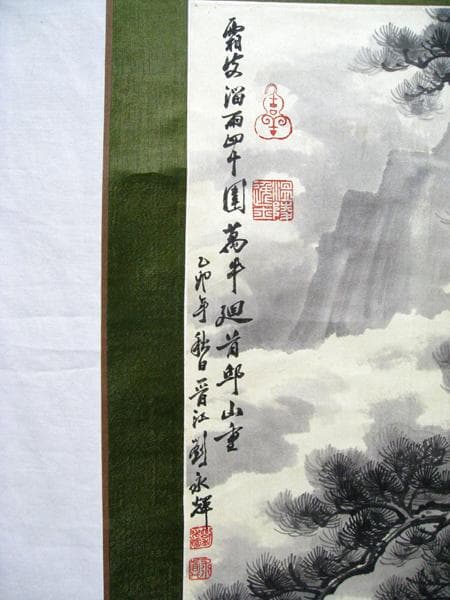 霜皮溜雨四十圍萬牛廻首邱山重
乙卯年秋日晉江劉永輝